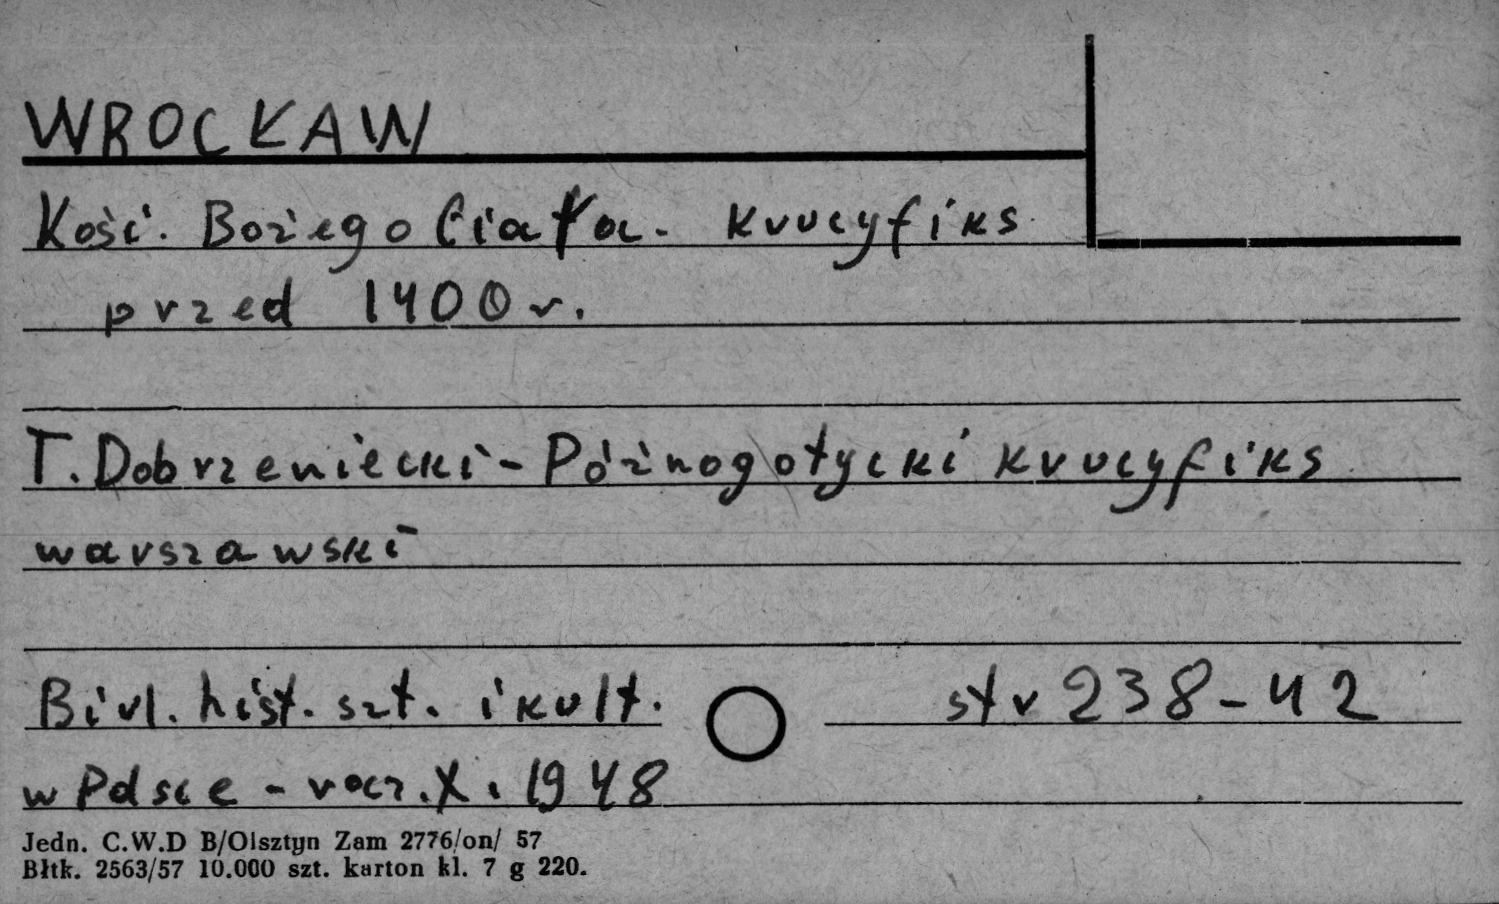 WROCŁAW
Kość. Bożego Ciała. krucyfiks
przed 1400 r.
T. Dobrzeniecki - Późnogotycki krucyfiks
warszawski
Biul. hist. szt. i kult.
str 238-42
w Polsce - rocz. X. 1948
Jedn. C.W.D B/Olsztyn Zam 2776/on/ 57
Błtk. 2563/57 10.000 szt. karton kl. 7 g 220.